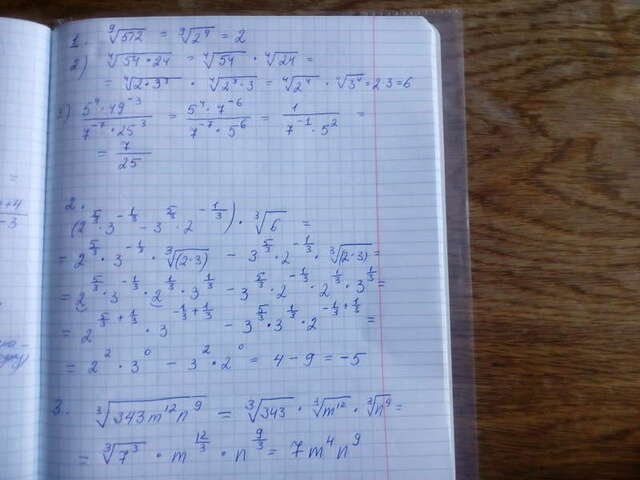 1. ⁹√512 = ⁹√2⁹ = 2
2) ⁴√54·24 = ⁴√54 · ⁴√24 =
= ⁴√2·3³ · ⁴√2³·3 = ⁴√2⁴ · ⁴√3⁴ = 2·3 = 6
3) (5⁴·49⁻³)/(7⁻⁷·25⁻³) = (5⁴·7⁻⁶)/(7⁻⁷·5⁶) = 1/(7⁻¹·5²) =
= 7/25
2.
(2^(5/3)·3^(-1/3) - 3^(5/3)·2^(-1/3)) · ³√6 =
= 2^(5/3)·3^(-1/3)·³√(2·3) - 3^(5/3)·2^(-1/3)·³√(2·3) =
= 2^(5/3)·3^(-1/3)·2^(1/3)·3^(1/3) - 3^(5/3)·2^(-1/3)·2^(1/3)·3^(1/3) =
= 2^(5/3+1/3)·3^(-1/3+1/3) - 3^(5/3)·3^(1/3)·2^(-1/3+1/3) =
= 2²·3⁰ - 3²·2⁰ = 4-9 = -5
3. ³√343m¹²n⁹ = ³√343 · ³√m¹² · ³√n⁹ =
= ³√7³ · m^(12/3) · n^(9/3) = 7m⁴n⁹